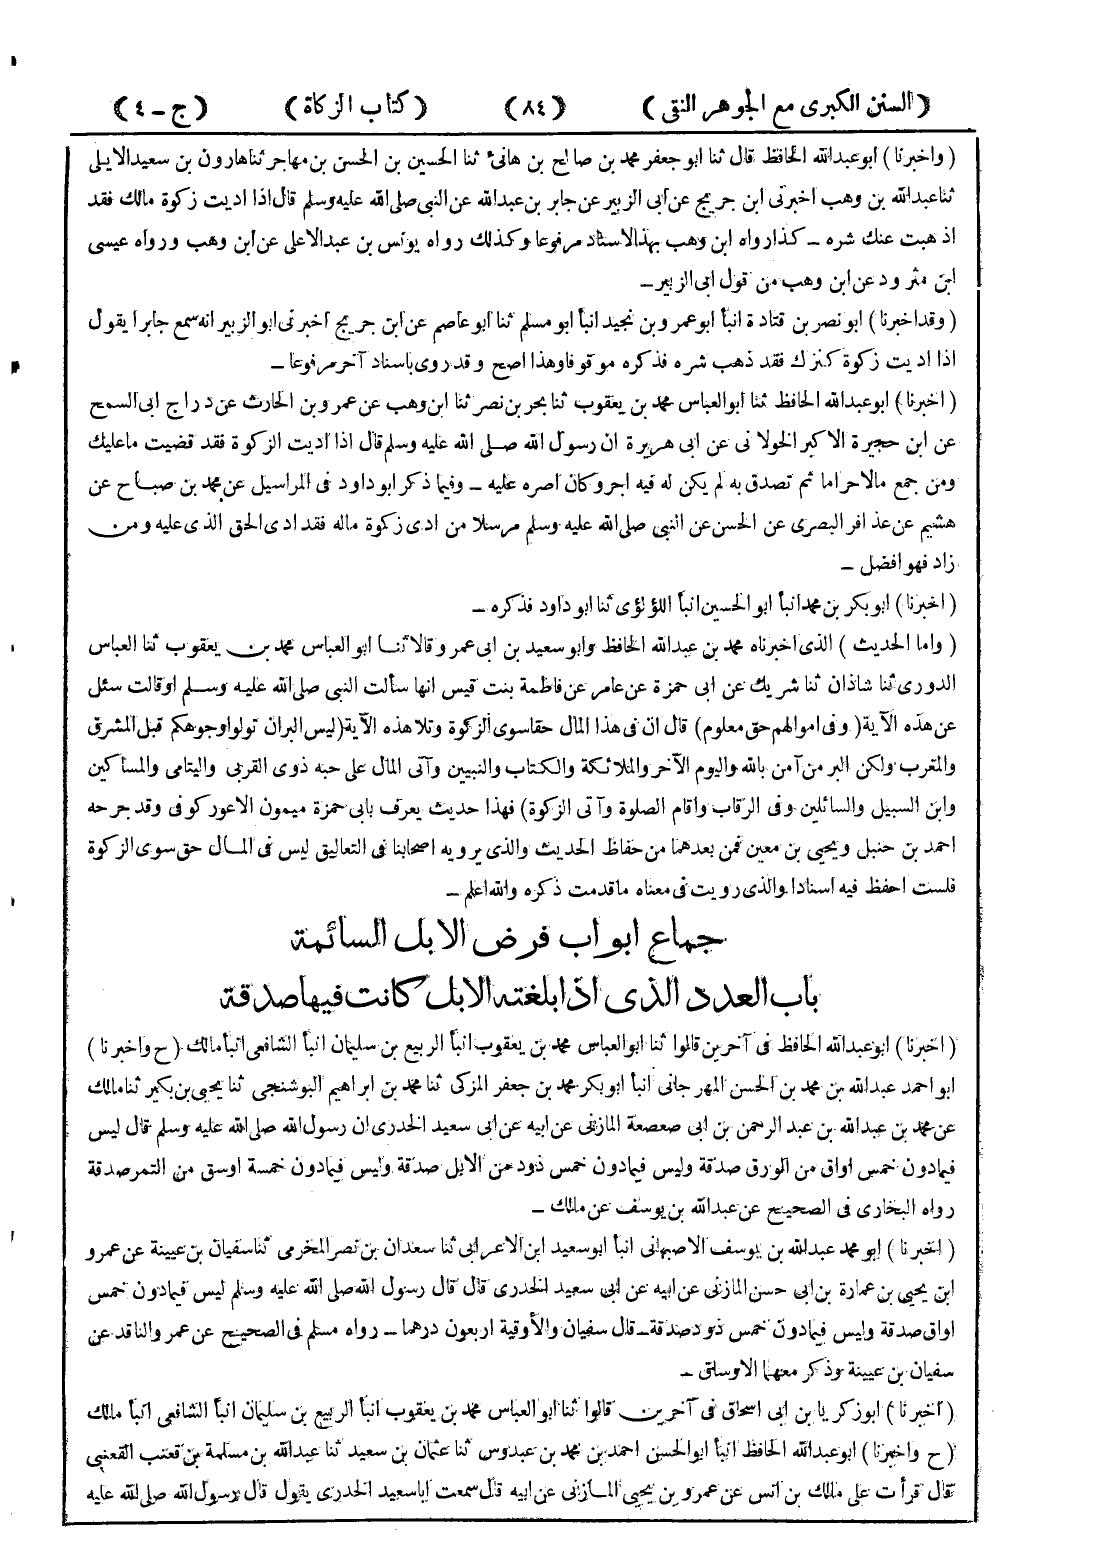 (السنن الكبرى مع الجوهر النقى) (٨٤) (كتاب الزكاة) (ج - ٤)
(واخبرنا) ابوعبدالله الحافظ قال ثنا ابو جعفر محمد بن صالح بن هانئ ثنا الحسين بن الحسن بن مهاجر ثنا هارون بن سعيد الايلى
ثنا عبدالله بن وهب اخبرنى ابن جريج عن ابى الزبير عن جابر بن عبدالله عن النبى صلى الله عليه وسلم قال اذا اديت زكوة مالك فقد
اذهبت عنك شره - كذا رواه ابن وهب بهذا الاسناد مرفوعا وكذلك رواه يونس بن عبد الاعلى عن ابن وهب ورواه عيسى
ابن مثرود عن ابن وهب من قول ابى الزبير -
(وقد اخبرنا) ابو نصر بن قتادة انبأ ابو عمرو بن نجيد انبأ ابو مسلم ثنا ابو عاصم عن ابن جريج اخبرنى ابو الزبير انه سمع جابرا يقول
اذا اديت زكوة كنزك فقد ذهب شره فذكره موقوفا وهذا اصح وقد روى باسناد آخر مرفوعا -
(اخبرنا) ابوعبدالله الحافظ ثنا ابو العباس محمد بن يعقوب ثنا بحر بن نصر ثنا ابن وهب عن عمرو بن الحارث عن دراج ابى السمح
عن ابن حجيرة الاكبر الخولانى عن ابى هريرة ان رسول الله صلى الله عليه وسلم قال اذا اديت الزكوة فقد قضيت ما عليك
ومن جمع مالا حراما ثم تصدق به لم يكن له فيه اجر وكان اصره عليه - وفيما ذكر ابو داود فى المراسيل عن محمد بن صباح عن
هشيم عن عذافر البصرى عن الحسن عن النبى صلى الله عليه وسلم مرسلا من ادى زكوة ماله فقد ادى الحق الذى عليه ومن
زاد فهو افضل -
(اخبرنا) ابو بكر بن محمد انبأ ابو الحسين انبأ اللؤلؤى ثنا ابو داود فذكره -
(واما الحديث) الذى اخبرناه محمد بن عبدالله الحافظ وابو سعيد بن ابى عمرو قالا ثنا ابو العباس محمد بن يعقوب ثنا العباس
الدورى ثنا شاذان ثنا شريك عن ابى حمزة عن عامر عن فاطمة بنت قيس انها سألت النبى صلى الله عليه وسلم او قالت سئل
عن هذه الآية (وفى اموالهم حق معلوم) قال ان فى هذا المال حقا سوى الزكوة وتلا هذه الآية (ليس البر ان تولوا وجوهكم قبل المشرق
والمغرب ولكن البر من آمن بالله واليوم الآخر والملائكة والكتاب والنبيين وآتى المال على حبه ذوى القربى واليتامى والمساكين
وابن السبيل والسائلين وفى الرقاب واقام الصلوة وآتى الزكوة) فهذا حديث يعرف بابى حمزة ميمون الاعور كوفى وقد جرحه
احمد بن حنبل ويحيى بن معين فمن بعدهما من حفاظ الحديث والذى يرويه اصحابنا فى التعاليق ليس فى المال حق سوى الزكوة
فلست احفظ فيه اسنادا والذى رويت فى معناه ما قدمت ذكره والله اعلم -
جماع ابواب فرض الابل السائمة
باب العدد الذى اذا بلغته الابل كانت فيها صدقة
(اخبرنا) ابوعبدالله الحافظ فى آخرين قالوا ثنا ابو العباس محمد بن يعقوب انبأ الربيع بن سليمان انبأ الشافعى انبأ مالك (ح واخبرنا)
ابو احمد عبدالله بن محمد بن الحسن المهرجانى انبأ ابو بكر محمد بن جعفر المزكى ثنا محمد بن ابراهيم البوشنجى ثنا يحيى بن بكير ثنا مالك
عن محمد بن عبدالله بن عبد الرحمن بن ابى صعصعة المازنى عن ابيه عن ابى سعيد الخدرى ان رسول الله صلى الله عليه وسلم قال ليس
فيما دون خمس اواق من الورق صدقة وليس فيما دون خمس ذود من الابل صدقة وليس فيما دون خمسة اوسق من التمر صدقة
رواه البخارى فى الصحيح عن عبدالله بن يوسف عن مالك -
(اخبرنا) ابو محمد عبدالله بن يوسف الاصبهانى انبأ ابو سعيد ابن الاعرابى ثنا سعدان بن نصر المخرمى ثنا سفيان بن عيينة عن عمرو
ابن يحيى بن عمارة بن ابى حسن المازنى عن ابيه عن ابى سعيد الخدرى قال قال رسول الله صلى الله عليه وسلم ليس فيما دون خمس
اواق صدقة وليس فيما دون خمس ذود صدقة - قال سفيان والأوقية اربعون درهما - رواه مسلم فى الصحيح عن عمرو الناقد عن
سفيان بن عيينة وذكر معهما الاوساق -
(اخبرنا) ابو زكريا بن ابى اسحاق فى آخرين قالوا ثنا ابو العباس محمد بن يعقوب انبأ الربيع بن سليمان انبأ الشافعى انبأ مالك
(ح واخبرنا) ابوعبدالله الحافظ انبأ ابو الحسن احمد بن محمد بن عبدوس ثنا عثمان بن سعيد ثنا عبدالله بن مسلمة بن قعنب القعنبى
قال قرأت على مالك بن انس عن عمرو بن يحيى المازنى عن ابيه قال سمعت ابا سعيد الخدرى يقول قال رسول الله صلى الله عليه